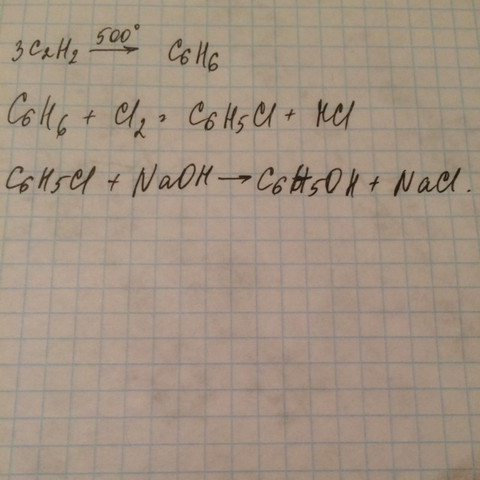 3C2H2 500° → C6H6
C6H6 + Cl2 = C6H5Cl + HCl
C6H5Cl + NaOH → C6H5OH + NaCl.